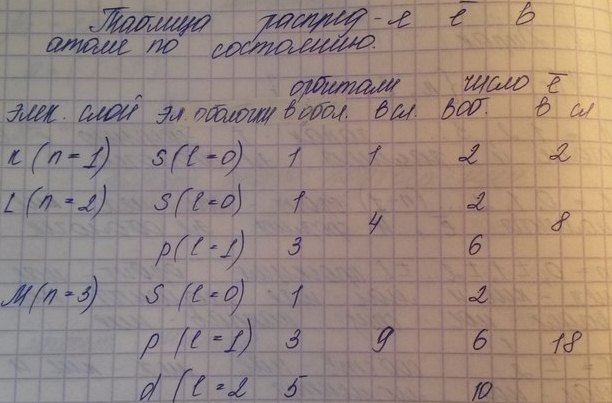 Таблица распред-е ē в
атоме по состоянию.
орбитали число ē
элек. слой эл. оболочки в обол. в сл. в об. в сл
K (n = 1) s (l = 0) 1 1 2 2
L (n = 2) s (l = 0) 1 2
4 8
p (l = 1) 3 6
M (n = 3) s (l = 0) 1 2
p (l = 1) 3 9 6 18
d (l = 2 5 10